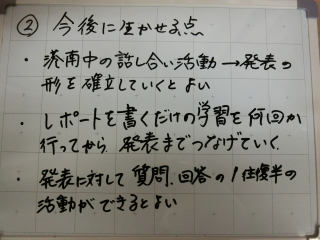 ② 今後に生かせる点
・済南中の話し合い活動→発表の
形を確立していくとよい
・レポートを書くだけの学習を何回か
行ってから、発表までつなげていく。
・発表に対して質問、回答の1往復半の
活動ができるとよい